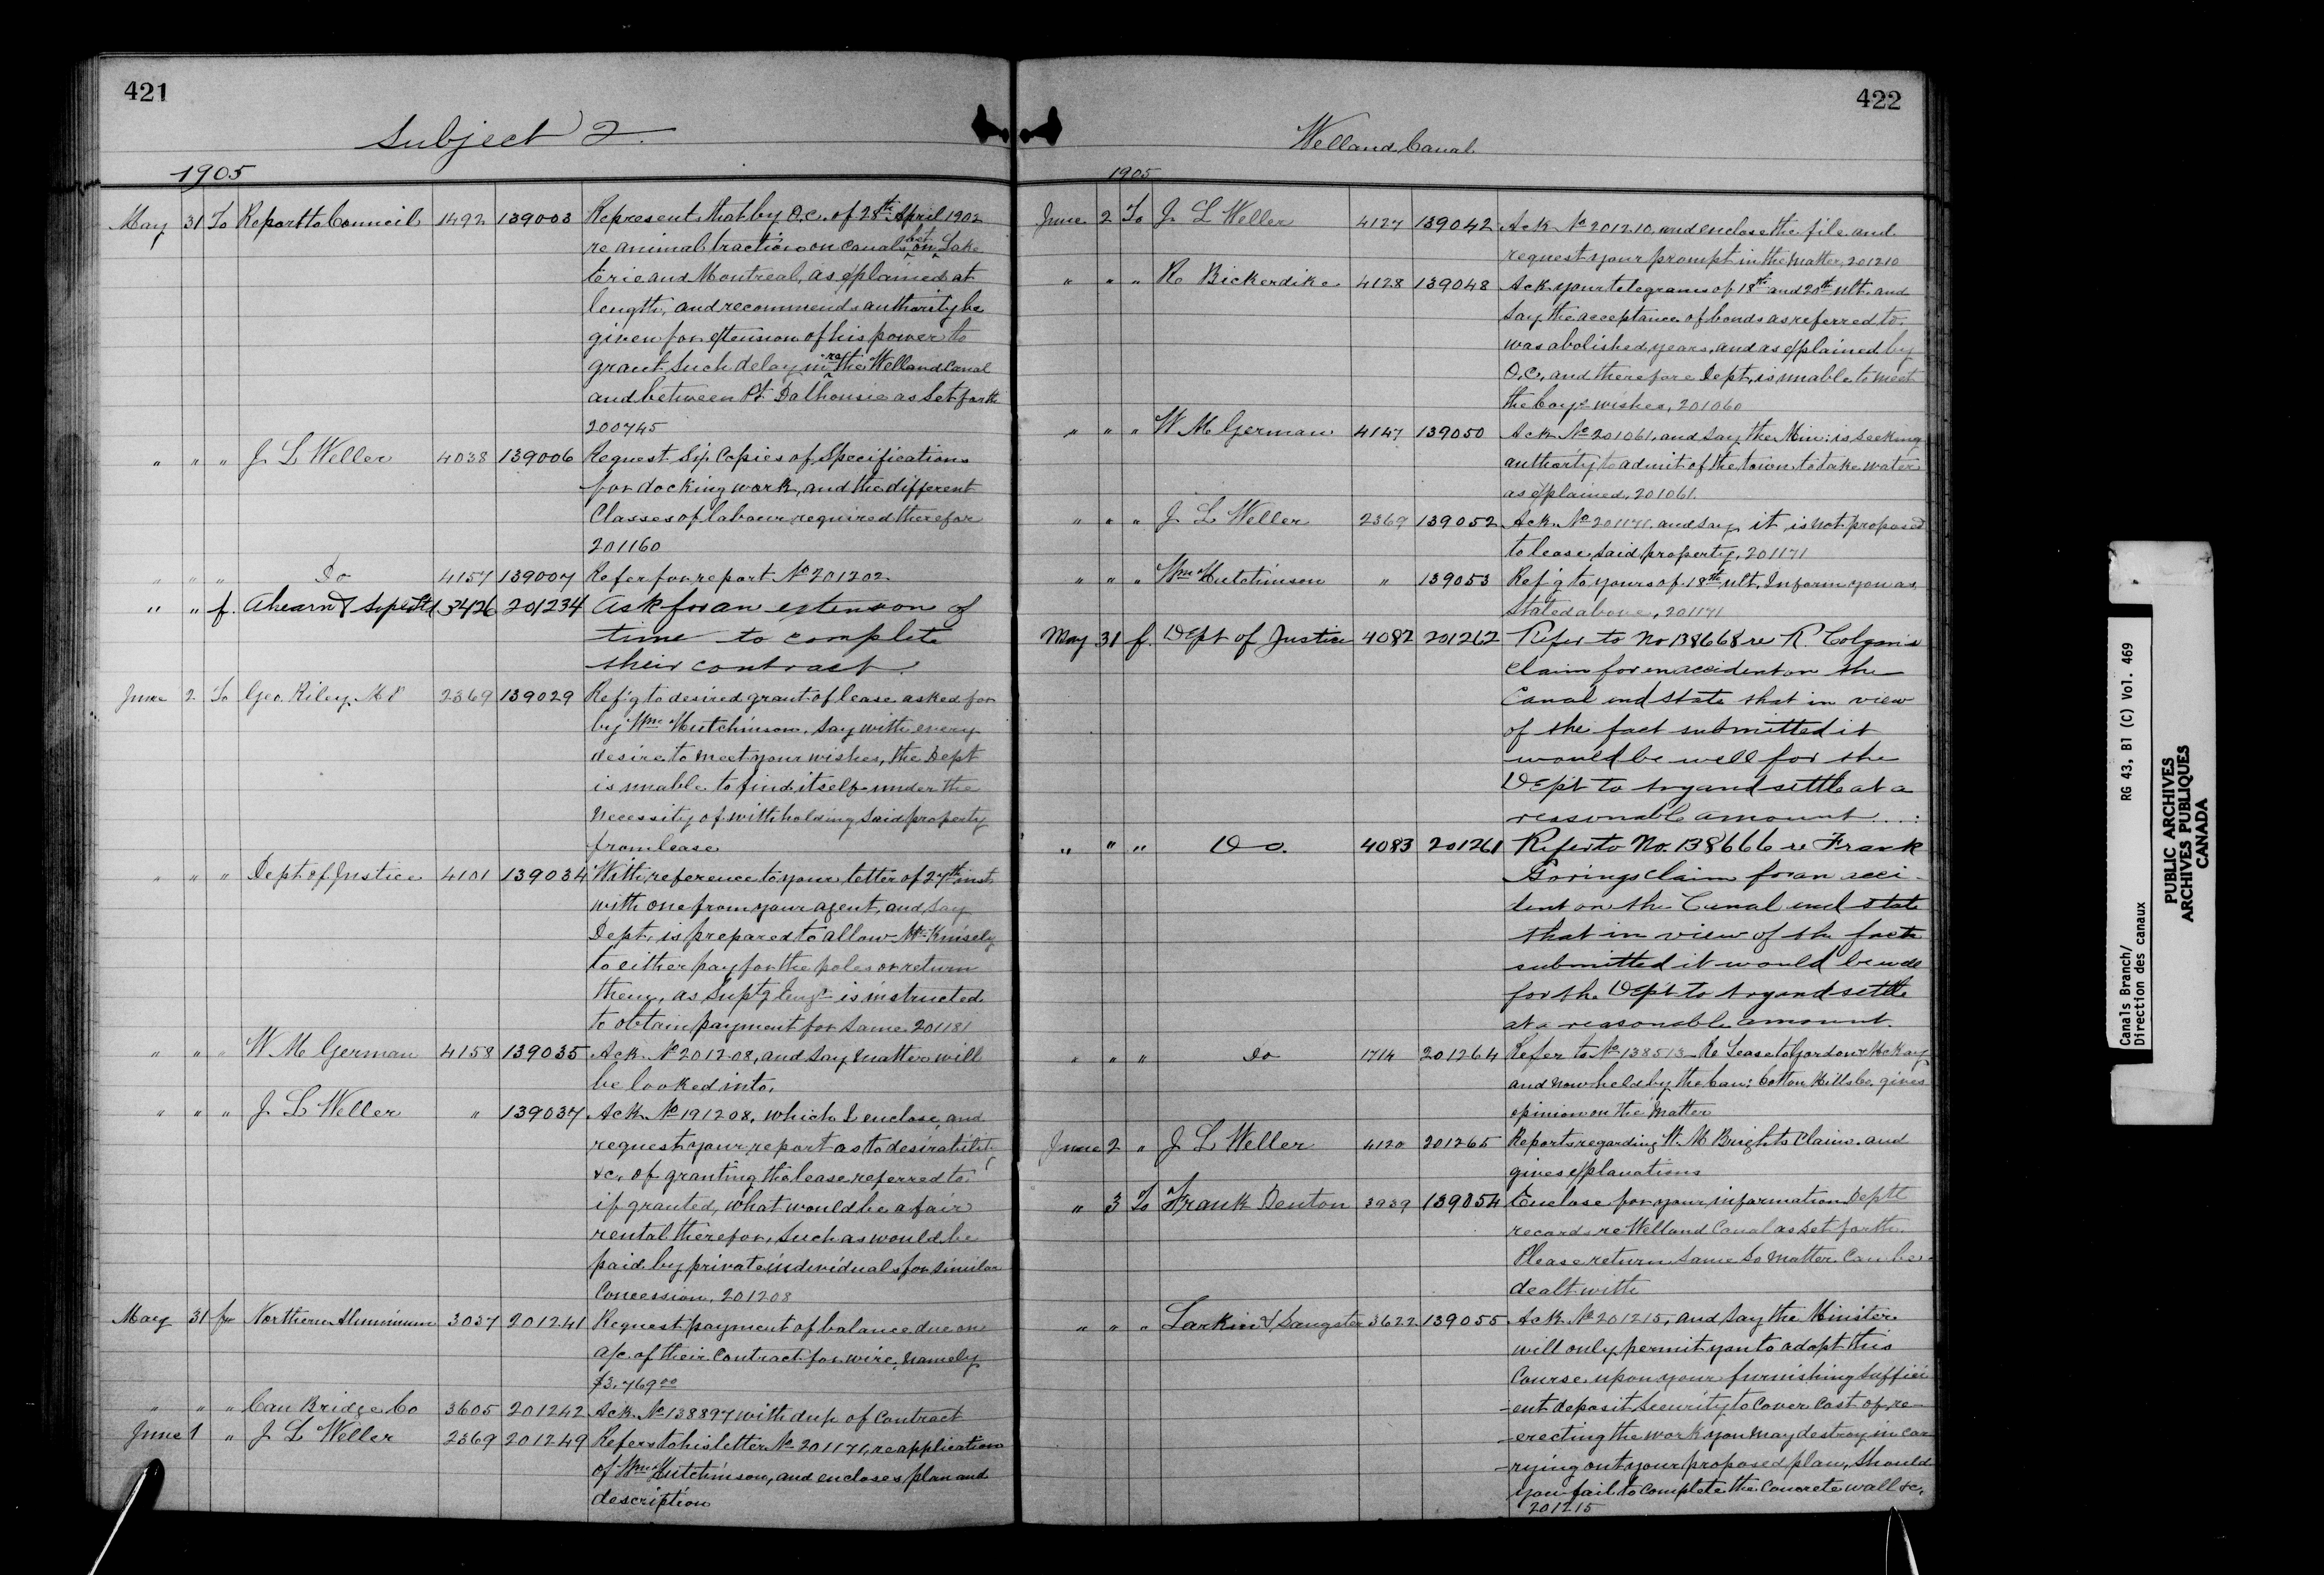 421
Subject 2
1905
May 31 To Report to Council 1492 139003 Represent that by O.C. of 28th April 1902
re animal traction on canals bet on Lake
Erie and Montreal, as explained at
length, and recommends authority be
given for extension of his power to
grant such delay in re the Welland Canal
and between Pt Dalhousie as set forth
200745
" " " J L Weller 4038 139006 Request Six Copies of Specifications
for docking work, and the different
Classes of labour required therefor
201160
" " " Do 4157 139007 Refer for report No 201202
" " f. Ahearn & Soper Ltd 3426 201234 Ask for an extension of
time to complete
their contract.
June 2 To Geo. Riley M P 2369 139029 Ref'g to desired grant of lease asked for
by Wm Hutchinson. Say with every
desire to meet your wishes, the Dept
is unable to find itself under the
necessity of withholding said property
from lease
" " " Dept. of Justice 4101 139034 With reference to your letter of 27th inst.
with one from your agent, and say
Dept. is prepared to allow Mr Knisely
to either pay for the poles or return
them, as Supt'g Eng'r is instructed
to obtain payment for same 201181
" " " W M German 4158 139035 Ack. No 201208, and say matter will
be looked into.
" " " J L Weller " 139037 Ack No 191208, which I enclose, and
request your report as to desirability
&c, of granting the lease referred to
if granted, what would be a fair
rental therefor, such as would be
paid by private individuals for similar
Concession, 201208
May 31 fr Northern Aluminum 3037 201241 Request payment of balance due on
a/c of their Contract for wire, namely
$3.769 00
" " " Can Bridge Co 3605 201242 Ack. No 138897 with dup of Contract
June 1 " J L Weller 2369 201249 Refers to his letter No 201171, re application
of Wm Hutchinson, and encloses plan and
description
422
Welland Canal
1905
June 2 To J L Weller 4127 139042 Ack No 201210, and enclose the file and
request your prompt in the matter, 201210
" " " R Bickerdike 4128 139048 Ack your telegrams of 18th and 20th ult. and
say the acceptance of bonds as referred to
was abolished years, and as explained by
O.C, and therefore Dept, is unable to meet
the Coy's wishes, 201060
" " " W M German 4147 139050 Ack No 201061, and say the Min: is seeking
authority to admit of the town to take water
as explained, 201061.
" " " J L Weller 2369 139052 Ack. No 201171. and say it is not proposed
to lease said property, 201171
" " " Wm Hutchinson " 139053 Ref'g to yours of 18th ult. Inform you as
stated above, 201171
May 31 f. Dept of Justice 4082 201262 Refer to No 138668 re R. Colgan's
claim for an accident on the
Canal and state that in view
of the fact submitted it
would be well for the
Dep't to try and settle at a
reasonable amount.
" " " Do. 4083 201261 Refer to No. 138666 re Frank
Gorings claim for an acci-
dent on the Canal and state
that in view of the facts
submitted it would be well
for the Dep't to try and settle
at a reasonable amount.
" " " Do 1714 201264 Refer to No 138513 Re Lease to Gordon & McKay
and now held by the Can: Cotton Mills Co. gives
opinion on the matter
June 2 " J L Weller 4120 201265 Reports regarding W. M Bright's Claim. and
gives explanations
" 3 To Frank Denton 3939 139054 Enclose for your information Deptl
records re Welland Canal as set forth.
Please return same so matter can be
dealt with
" " " Larkin & Sangster 3622 139055 Ack No 201215, and say the Minister
will only permit you to adopt this
Course upon your furnishing suffici
-ent deposit security to cover cost of re-
-erecting the work you may destroy in car
-rying out your proposed plan, should
you fail to complete the Concrete wall &c,
201215
Canals Branch/
Direction des canaux
RG 43, B1 (C) Vol. 469
PUBLIC ARCHIVES
ARCHIVES PUBLIQUES
CANADA